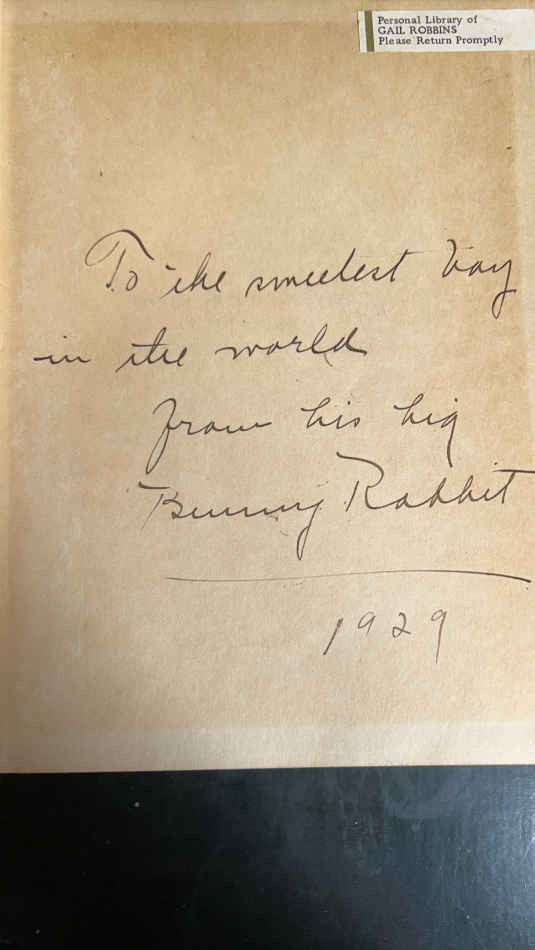 Personal Library of
GAIL ROBBINS
Please Return Promptly
To the sweetest boy
in the world
from his big
Bunny Rabbit
1929